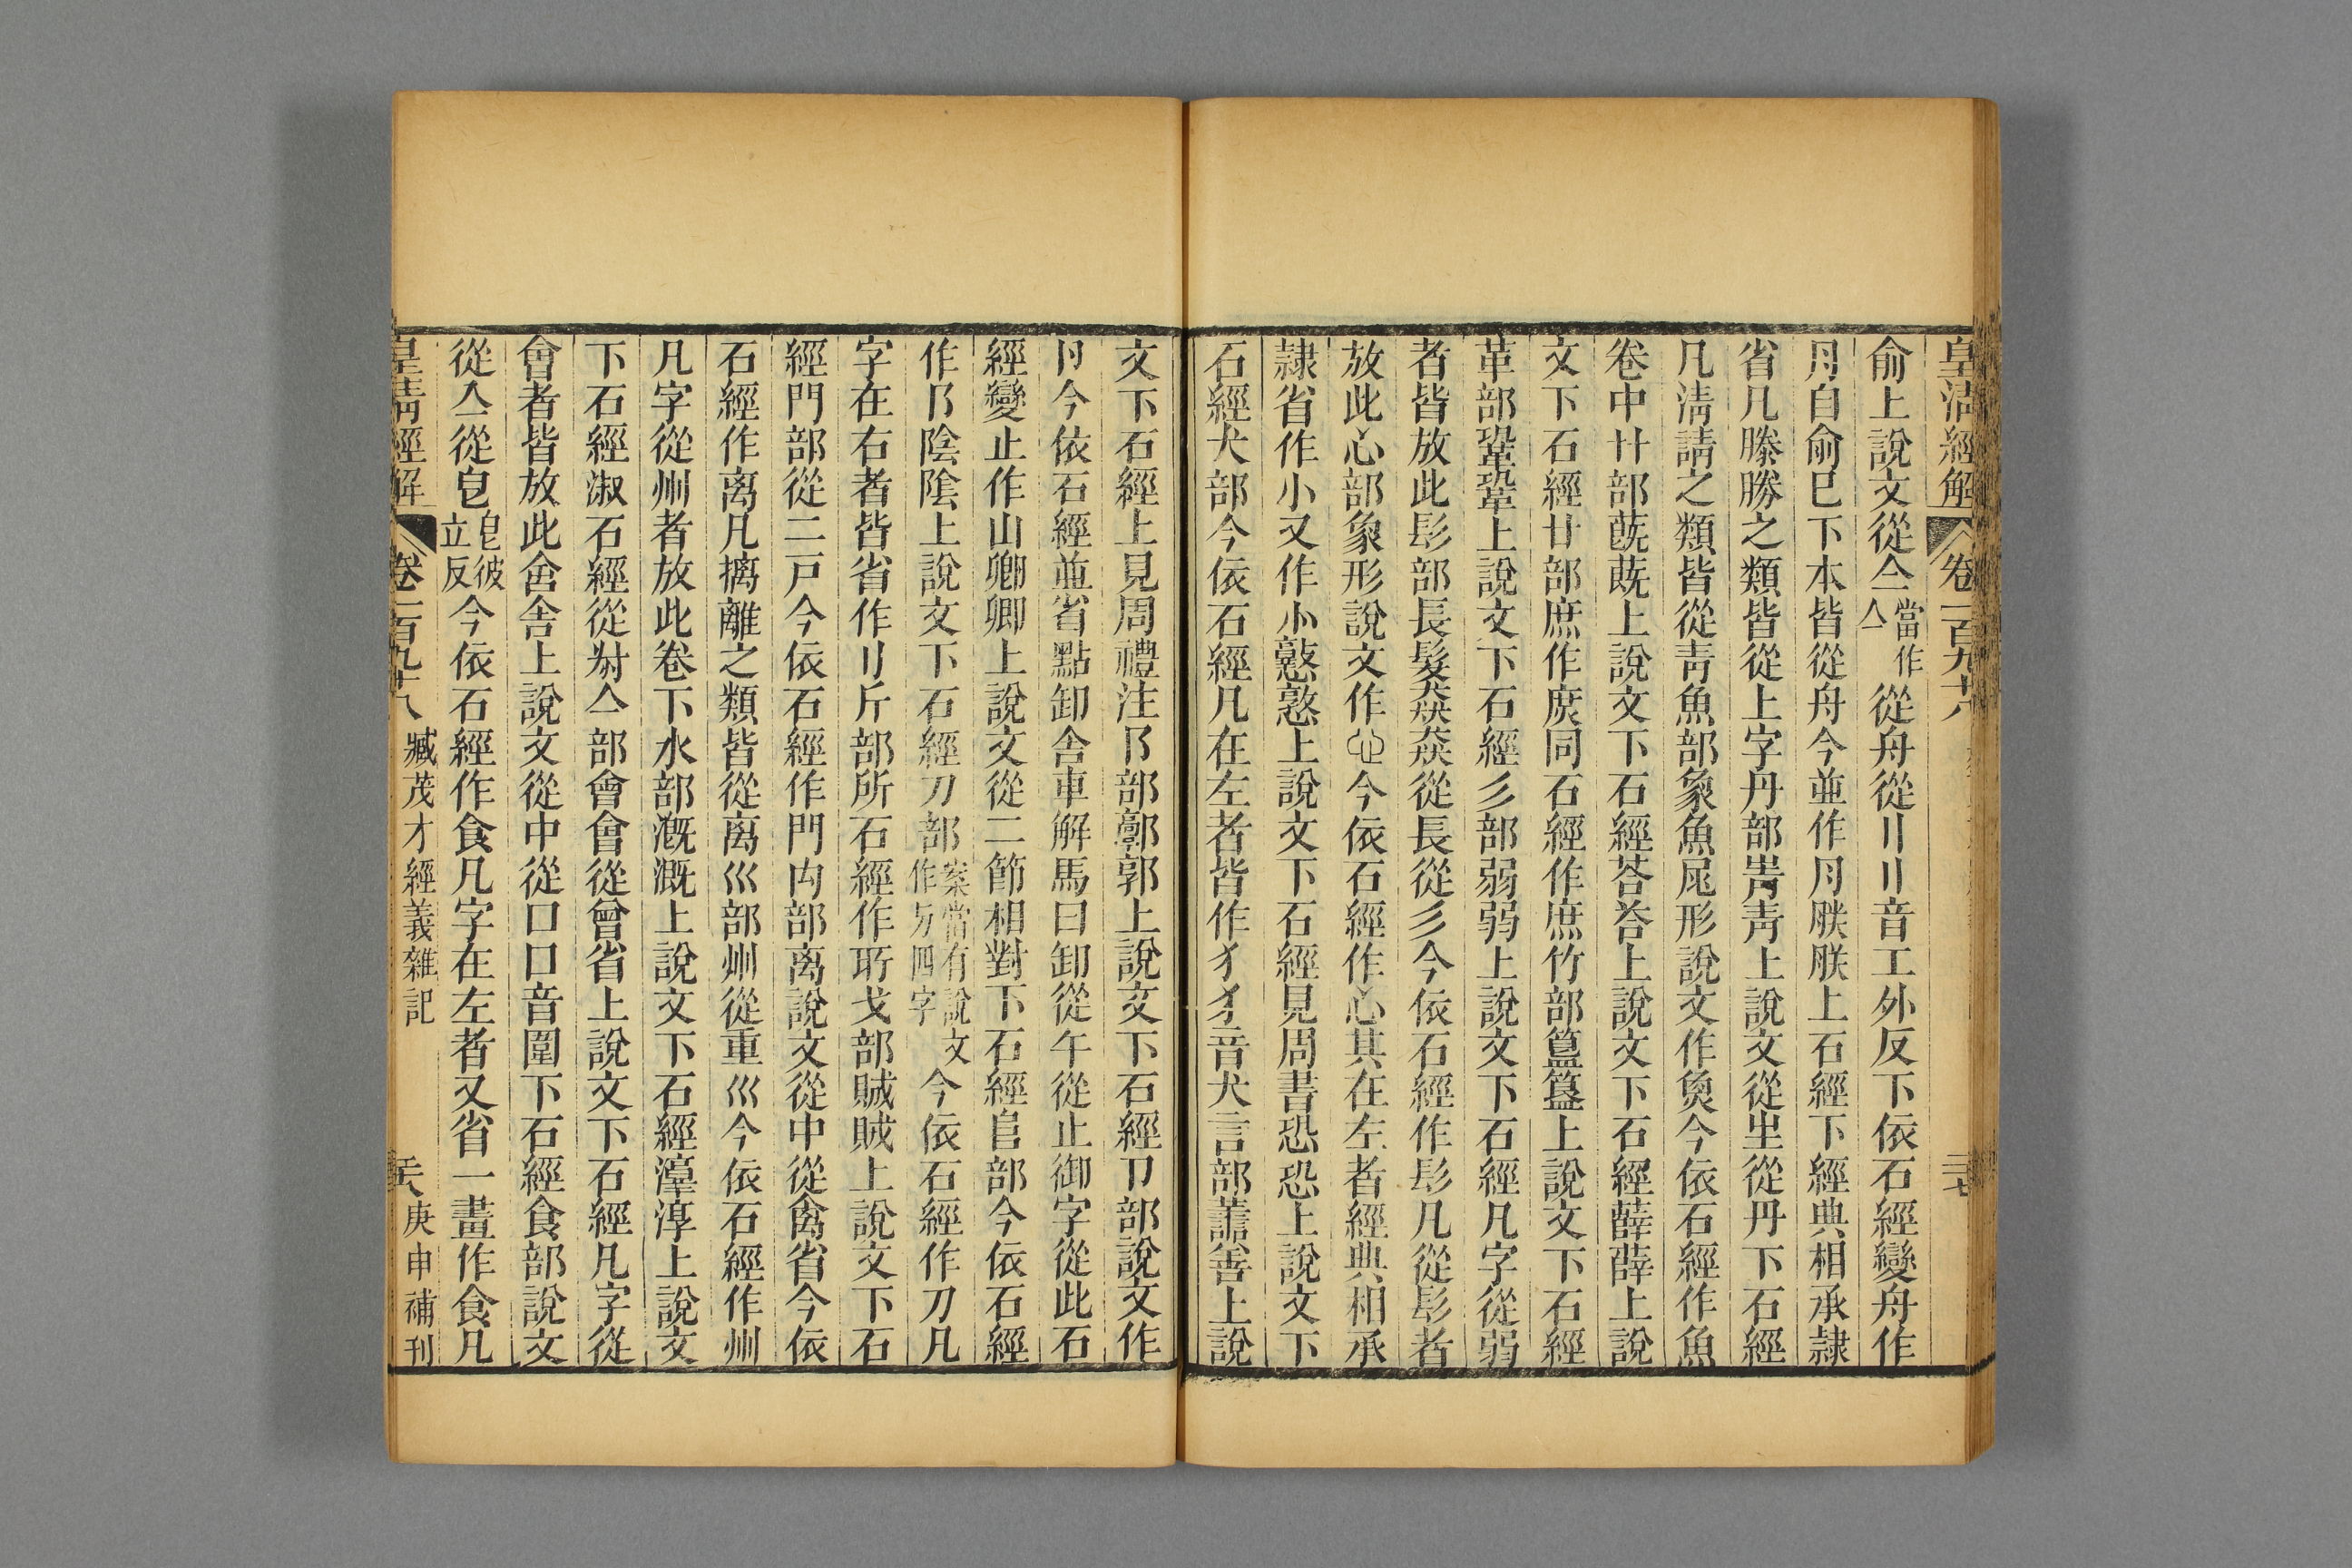 皇淸經解 卷一百九十八 二十七
俞上說文從亼當作亼從舟從〢〢音工外反下依石經變舟作
⺼自俞已下本皆從舟今並作⺼朕朕上石經下經典相承隸
省凡縢勝之類皆從上字丹部靑青上說文從生從丹下石經
凡淸請之類皆從靑魚部象魚尾形說文作𤋳今依石經作魚
卷中廾部蔇蔇上說文下石經荅荅上說文下石經薛薛上說
文下石經廿部庶作庻同石經作庶竹部簋簋上說文下石經
革部鞏鞏上說文下石經彡部弱弱上說文下石經凡字從弱
者皆放此髟部長髮猋猋從長從彡今依石經作髟凡從髟者
放此心部象形說文作今依石經作心其在左者經典相承
隸省作小又作㣺憨憨上說文下石經見周書恐恐上說文下
石經犬部今依石經凡在左者皆作犭犭音犬言部譱善上說
文下石經上見周禮注阝部𩫏郭上說文下石經卩部說文作
卪今依石經並省點卸舍車解馬曰卸從午從止御字從此石
經變止作山卿卿上說文從二節相對下石經𠂤部今依石經
作阝陰陰上說文下石經刀部案當有說文作刀四字今依石經作刀凡
字在右者皆省作刂斤部所石經作㪽戈部賊賊上說文下石
經門部從二戸今依石經作門禸部离說文從中從禽省今依
石經作离凡摛離之類皆從离巛部州從重巛今依石經作州
凡字從州者放此卷下水部漑溉上說文下石經𣶏淳上說文
下石經淑石經從尗亼部會會從曾省上說文下石經凡字從
會者皆放此舍舍上說文從中從口口音圍下石經食部說文
從亼從皀皀彼立反今依石經作食凡字在左者又省一畫作飠凡
皇淸經解 卷一百九十八 臧茂才經義雜記 二十八 庚申補刊